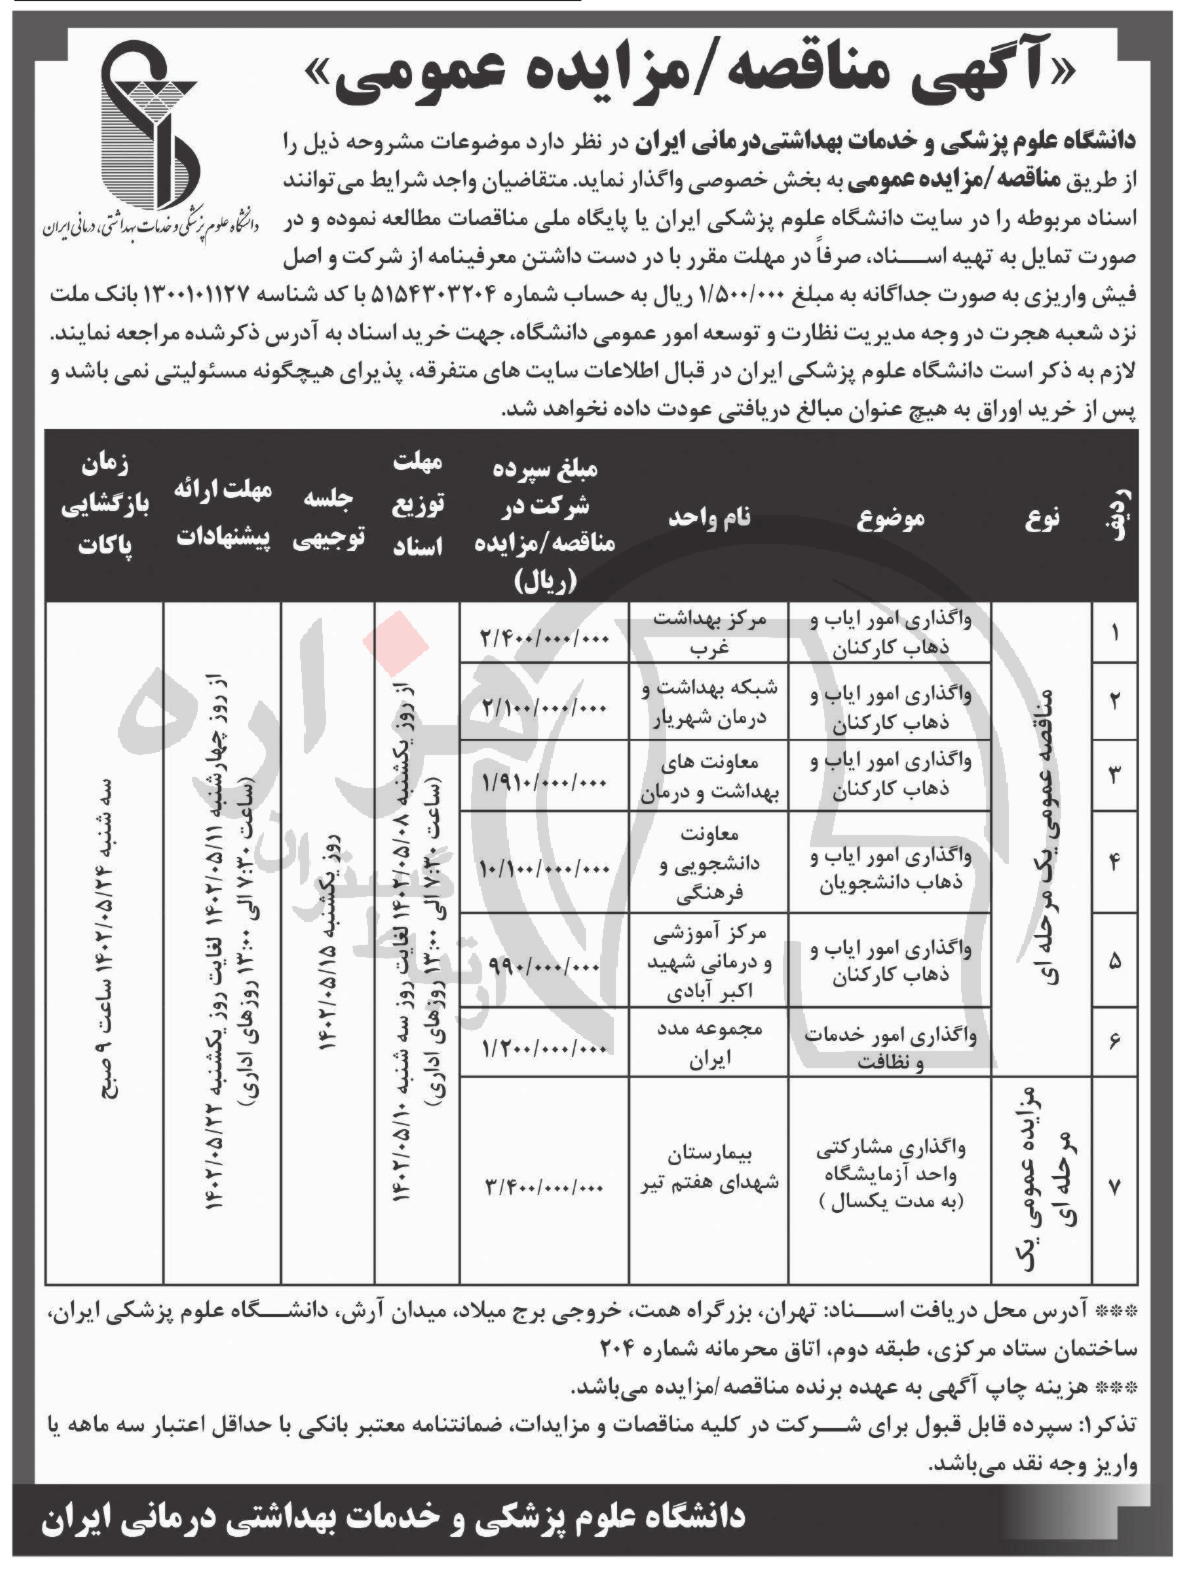 «آگهی مناقصه/مزایده عمومی»
دانشگاه علوم پزشکی و خدمات بهداشتی، درمانی ایران
دانشگاه علوم پزشکی و خدمات بهداشتی‌درمانی ایران در نظر دارد موضوعات مشروحه ذیل را
از طریق مناقصه/مزایده عمومی به بخش خصوصی واگذار نماید. متقاضیان واجد شرایط می‌توانند
اسناد مربوطه را در سایت دانشگاه علوم پزشکی ایران یا پایگاه ملی مناقصات مطالعه نموده و در
صورت تمایل به تهیه اسناد، صرفاً در مهلت مقرر با در دست داشتن معرفینامه از شرکت و اصل
فیش واریزی به صورت جداگانه به مبلغ ۱/۵۰۰/۰۰۰ ریال به حساب شماره ۵۱۵۴۳۰۳۲۰۴ با کد شناسه ۱۳۰۰۱۰۱۱۲۷ بانک ملت
نزد شعبه هجرت در وجه مدیریت نظارت و توسعه امور عمومی دانشگاه، جهت خرید اسناد به آدرس ذکرشده مراجعه نمایند.
لازم به ذکر است دانشگاه علوم پزشکی ایران در قبال اطلاعات سایت های متفرقه، پذیرای هیچگونه مسئولیتی نمی باشد و
پس از خرید اوراق به هیچ عنوان مبالغ دریافتی عودت داده نخواهد شد.
ردیف
نوع
موضوع
نام واحد
مبلغ سپرده
شرکت در
مناقصه/مزایده
(ریال)
مهلت
توزیع
اسناد
جلسه
توجیهی
مهلت ارائه
پیشنهادات
زمان
بازگشایی
پاکات
۱
مناقصه عمومی یک مرحله ای
واگذاری امور ایاب و
ذهاب کارکنان
مرکز بهداشت
غرب
۲/۴۰۰/۰۰۰/۰۰۰
از روز یکشنبه ۱۴۰۲/۰۵/۰۸ لغایت روز سه شنبه ۱۴۰۲/۰۵/۱۰
(ساعت ۷:۳۰ الی ۱۳:۰۰ روزهای اداری)
روز یکشنبه ۱۴۰۲/۰۵/۱۵
از روز چهارشنبه ۱۴۰۲/۰۵/۱۱ لغایت روز یکشنبه ۱۴۰۲/۰۵/۲۲
(ساعت ۷:۳۰ الی ۱۳:۰۰ روزهای اداری)
سه شنبه ۱۴۰۲/۰۵/۲۴ ساعت ۹ صبح
۲
واگذاری امور ایاب و
ذهاب کارکنان
شبکه بهداشت و
درمان شهریار
۲/۱۰۰/۰۰۰/۰۰۰
۳
واگذاری امور ایاب و
ذهاب کارکنان
معاونت های
بهداشت و درمان
۱/۹۱۰/۰۰۰/۰۰۰
۴
واگذاری امور ایاب و
ذهاب دانشجویان
معاونت
دانشجویی و
فرهنگی
۱۰/۱۰۰/۰۰۰/۰۰۰
۵
واگذاری امور ایاب و
ذهاب کارکنان
مرکز آموزشی
و درمانی شهید
اکبر آبادی
۹۹۰/۰۰۰/۰۰۰
۶
واگذاری امور خدمات
و نظافت
مجموعه مدد
ایران
۱/۲۰۰/۰۰۰/۰۰۰
۷
مزایده عمومی یک
مرحله ای
واگذاری مشارکتی
واحد آزمایشگاه
(به مدت یکسال )
بیمارستان
شهدای هفتم تیر
۳/۴۰۰/۰۰۰/۰۰۰
هزاره
گستران
ارتباط
*** آدرس محل دریافت اسناد: تهران، بزرگراه همت، خروجی برج میلاد، میدان آرش، دانشگاه علوم پزشکی ایران،
ساختمان ستاد مرکزی، طبقه دوم، اتاق محرمانه شماره ۲۰۴
*** هزینه چاپ آگهی به عهده برنده مناقصه/مزایده می‌باشد.
تذکر۱: سپرده قابل قبول برای شرکت در کلیه مناقصات و مزایدات، ضمانتنامه معتبر بانکی با حداقل اعتبار سه ماهه یا
واریز وجه نقد می‌باشد.
دانشگاه علوم پزشکی و خدمات بهداشتی درمانی ایران